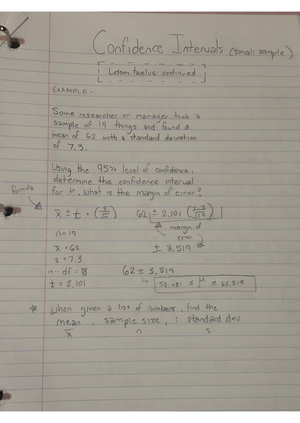 Confidence Intervals (small sample)
Lesson twelve continued
EXAMPLE -
Some researcher or manager took a
sample of 19 things and found a
mean of 62 with a standard deviation
of 7.3.
Using the 95% level of confidence,
determine the confidence interval
for μ. What is the margin of error?
formula
x̄ ± t · (s/√n)
62 ± 2.101 (7.3/√19)
margin of
error
n=19
± 3.519
x̄=62
s=7.3
df = 18
62 ± 3.519
t = 2.101
58.481 ≤ μ ≤ 65.519
* When given a list of numbers, find the
mean, sample size, : standard dev
x̄ n s